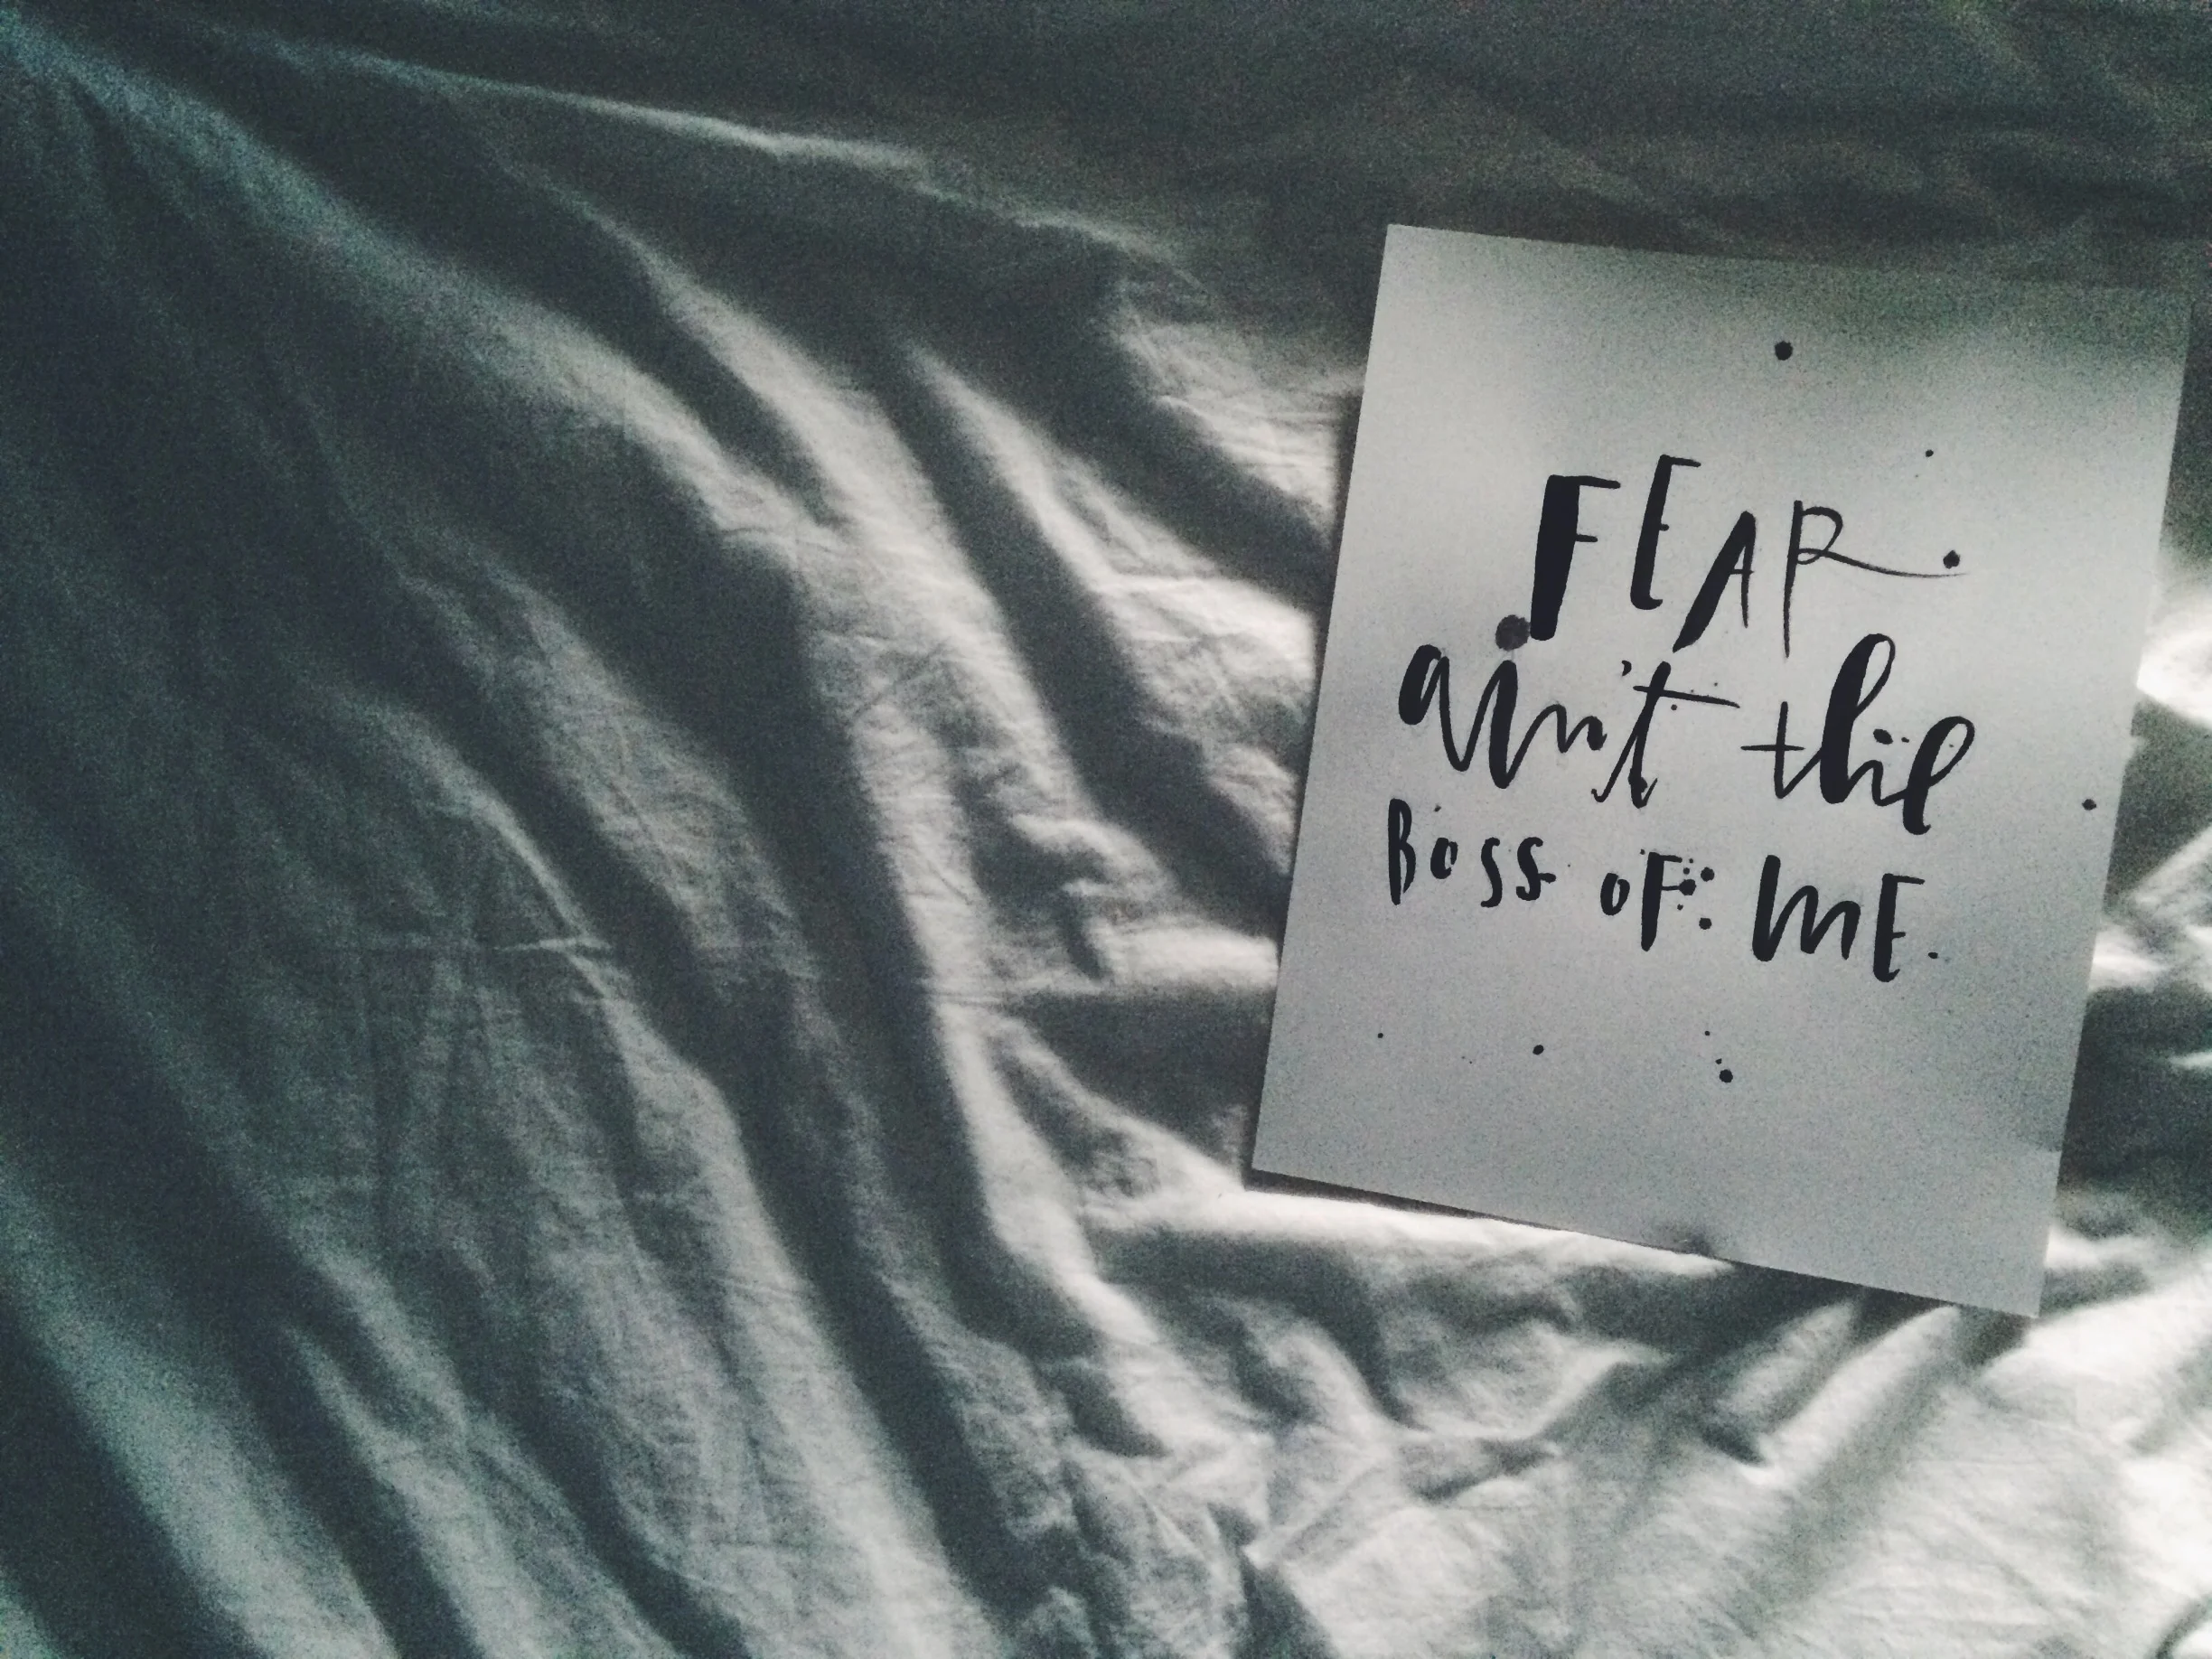 FEAR
ain't the
BOSS OF ME.